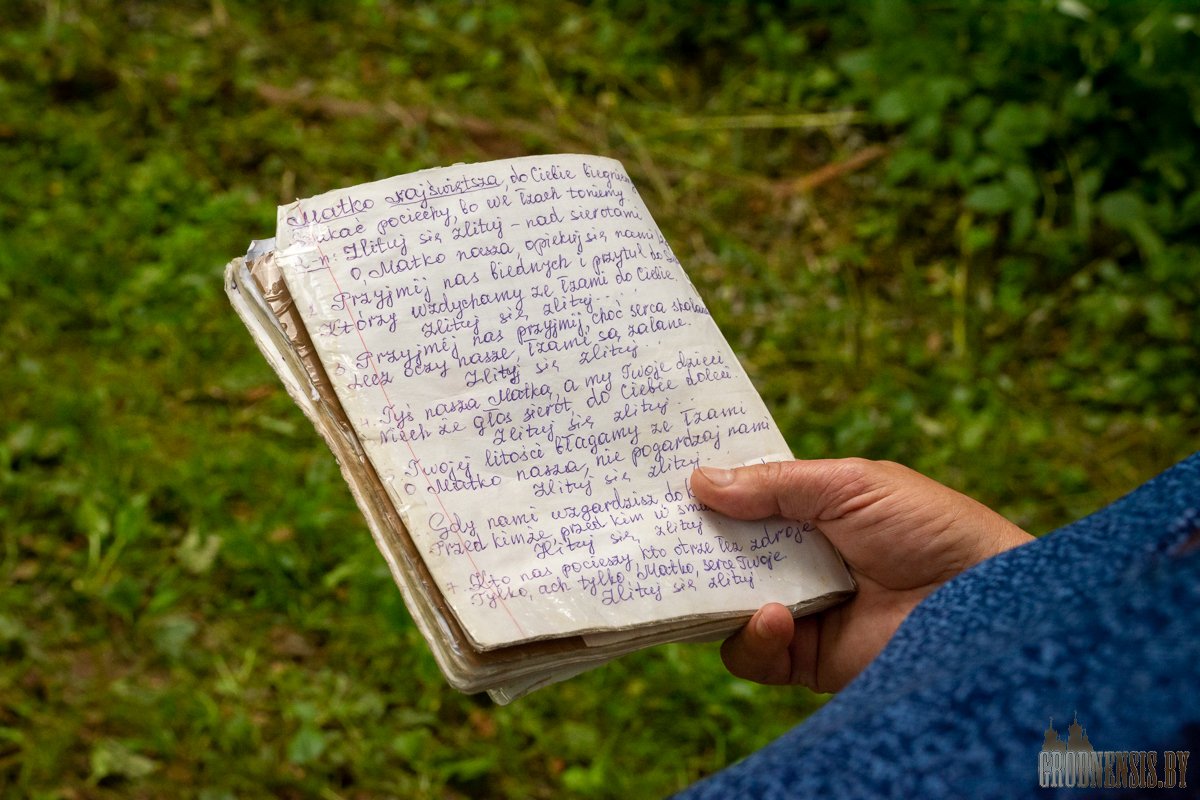 Matko najświętsza, do Ciebie
pociechy, bo we łzach toniemy
Zlituj się zlituj - nad sierotami
O, Matko nasza opiekuj się nami
Przyjmij nas biednych i przytul do
Którzy wzdychamy ze łzami do Ciebie
Zlituj się, zlituj...
3. Przyjmij nas przyjmij, choć serca
Lecz oczy nasze, łzami są zalane.
Zlituj się zlituj..
4. Tyś nasza Matka, a my Twoje dzieci
Niech że głos sierót, do Ciebie doleci.
Zlituj się zlituj
Twojej litości błagamy ze łzami
O Matko nasza, nie pogardzaj nami
Zlituj się zlituj
Gdy nami wzgardzisz do
Przed kimże, przed kim w
Zlituj się, zlituj
7. Kto nas pocieszy kto otrze łez zdroje
Tylko, ach tylko, Matko, serce Twoje.
Zlituj się zlituj
GRODNENSIS.BY